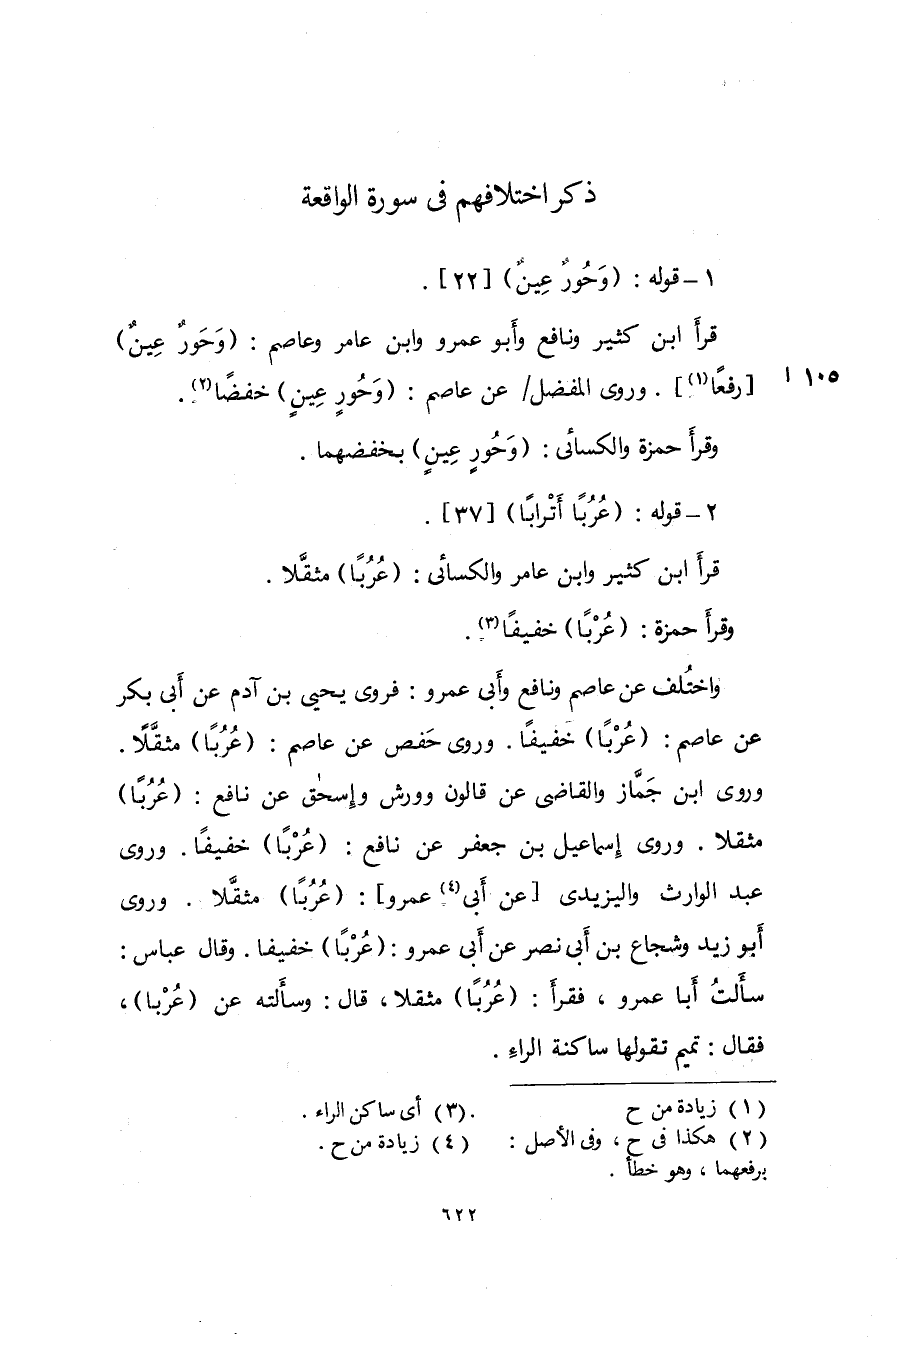 ذكر اختلافهم فى سورة الواقعة
١ - قوله : (وَحُورٌ عِينٌ) [٢٢] .
قرأَ ابن كثير ونافع وأَبو عمرو وابن عامر وعاصم : (وَحَورٌ عِينٌ)
[رفعًا(١)] . وروى المفضل/ عن عاصم : (وَحُورٍ عِينٍ) خفضًا(٢) .
١٠٥ ا
وقرأَ حمزة والكسائى : (وَحُورٍ عِينٍ) بخفضهما .
٢ - قوله : (عُرُبًا أَتْرابًا) [٣٧] .
قرأَ ابن كثير وابن عامر والكسائى : (عُرُبًا) مثقَّلا .
وقرأَ حمزة : (عُرْبًا) خفيفًا(٣) .
واختُلف عن عاصم ونافع وأَبى عمرو : فروى يحيى بن آدم عن أَبى بكر
عن عاصم : (عُرْبًا) خفيفًا . وروى حَفص عن عاصم : (عُرُبًا) مثقَّلًا .
وروى ابن جَمَّاز والقاضى عن قالون وورش وإسحٰق عن نافع : (عُرُبًا)
مثقلا . وروى إسماعيل بن جعفر عن نافع : (عُرْبًا) خفيفًا . وروى
عبد الوارث واليزيدى [عن أَبى(٤) عمرو] : (عُرُبًا) مثقَّلا . وروى
أَبو زيد وشجاع بن أَبى نصر عن أَبى عمرو : (عُرْبًا) خفيفا . وقال عباس :
سأَلتُ أَبا عمرو ، فقرأَ : (عُرُبًا) مثقلا ، قال : وسأَلته عن (عُرْبا) ،
فقال : تميم تقولها ساكنة الراءِ .
(١) زيادة من ح
(٢) هكذا فى ح ، وفى الأصل :
برفعهما ، وهو خطأ .
.(٣) أى ساكن الراء .
(٤) زيادة من ح .
٦٢٢